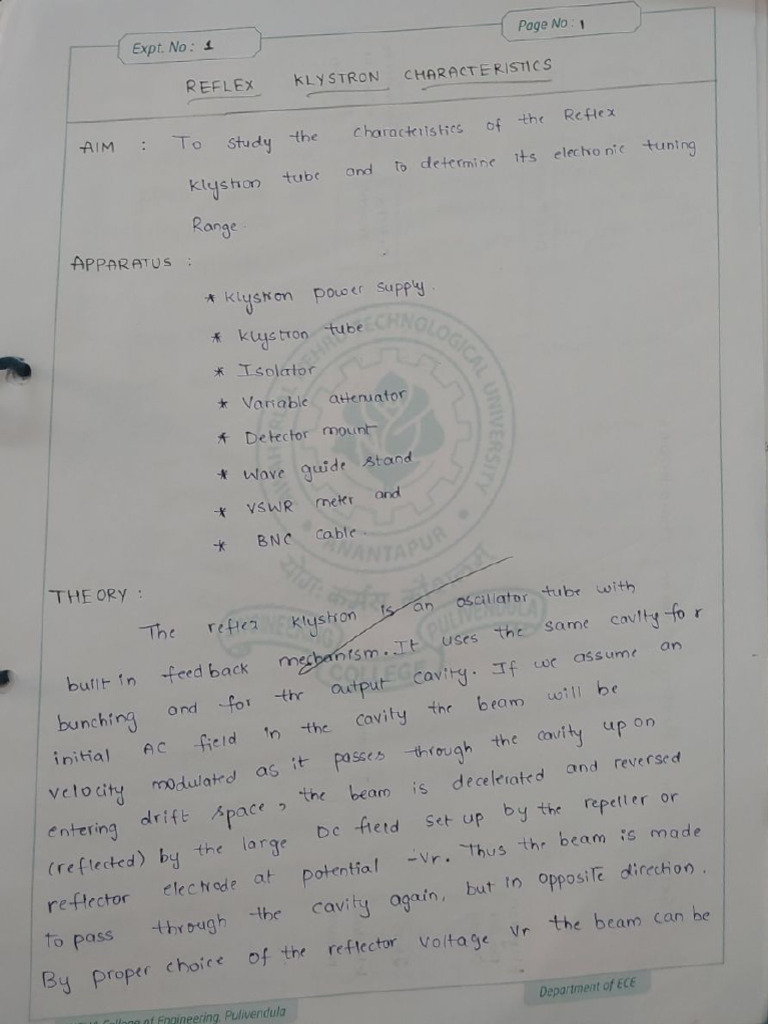 Expt. No : 1
Page No : 1
REFLEX KLYSTRON CHARACTERISTICS
AIM : To study the characteristics of the Reflex
Klystron tube and to determine its electronic tuning
Range.
APPARATUS :
* Klystron power supply.
* Klystron tube
* Isolator
* Variable attenuator
* Detector mount
* Wave guide stand
* VSWR meter and
* BNC cable.
THEORY :
The reflex klystron is an oscillator tube with
built in feedback mechanism. It uses the same cavity for
bunching and for the output cavity. If we assume an
initial AC field in the cavity the beam will be
velocity modulated as it passes through the cavity up on
entering drift space, the beam is decelerated and reversed
(reflected) by the large DC field set up by the repeller or
reflector electrode at potential -Vr. Thus the beam is made
to pass through the cavity again, but in opposite direction.
By proper choice of the reflector voltage Vr the beam can be
College of Engineering, Pulivendula
Department of ECE
NEHRU TECHNOLOGICAL UNIVERSITY
ANANTAPUR
योगः कर्मसु कौशलम्
PULIVENDULA
COLLEGE